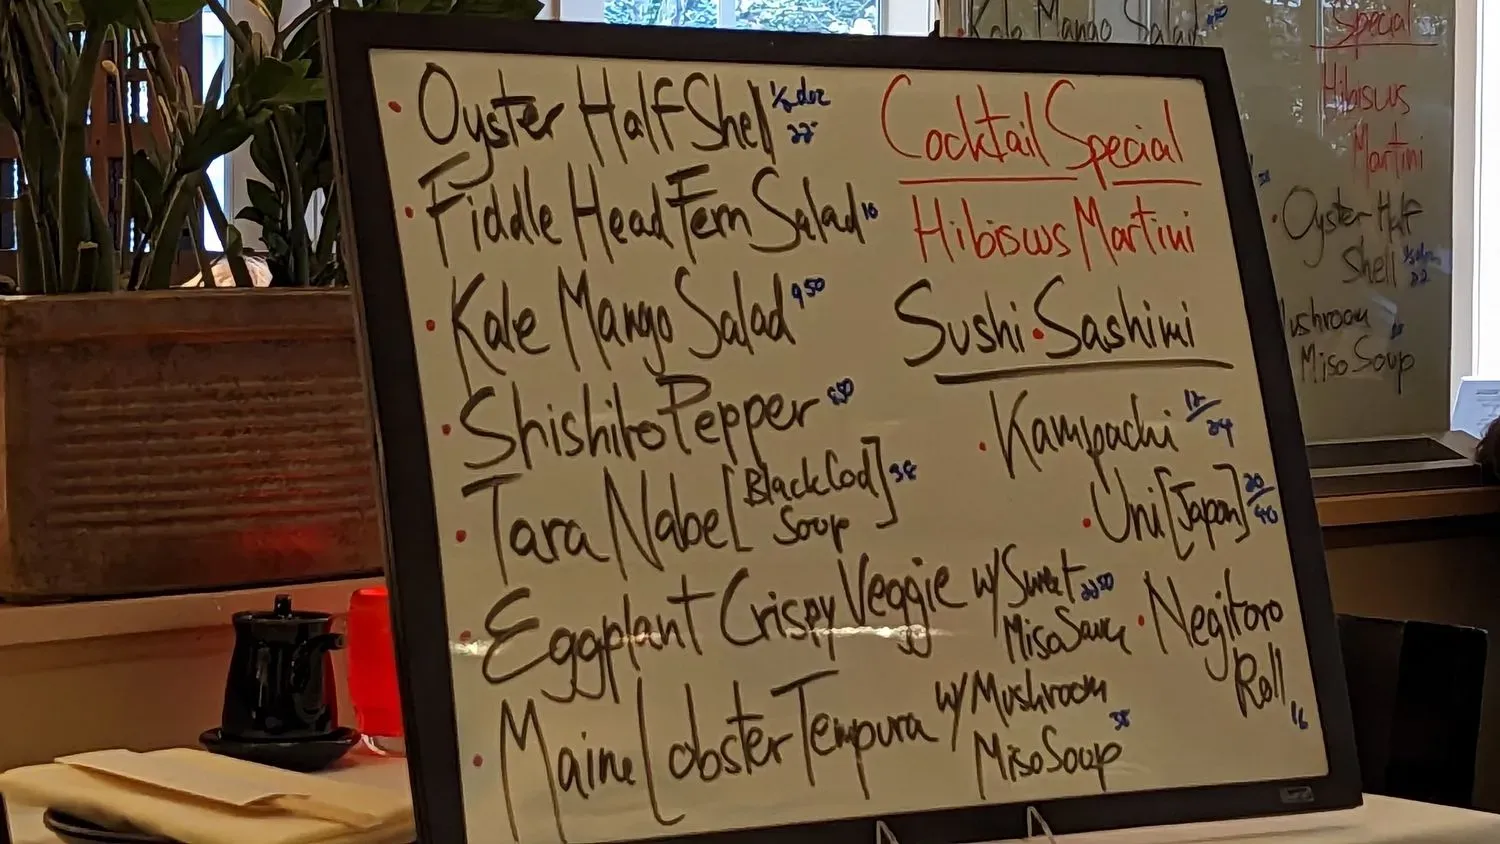 • Oyster Half Shell 1/2 doz 22
• Fiddle Head Fern Salad 10
• Kale Mango Salad 9 50
• Shishito Pepper 8 50
• Tara Nabe [Black Cod Soup] 38
• Eggplant Crispy Veggie w/ Sweet 22 50
Miso Sauce
• Maine Lobster Tempura w/ Mushroom
Miso Soup 38
Cocktail Special
Hibiscus Martini
Sushi • Sashimi
• Kampachi 12/24
• Uni [Japan] 20/40
• Negitoro
Roll 16
Kale Mango Salad
Special
Hibiscus
Martini
• Oyster Half
Shell 1/2 doz 22
Mushroom
Miso Soup